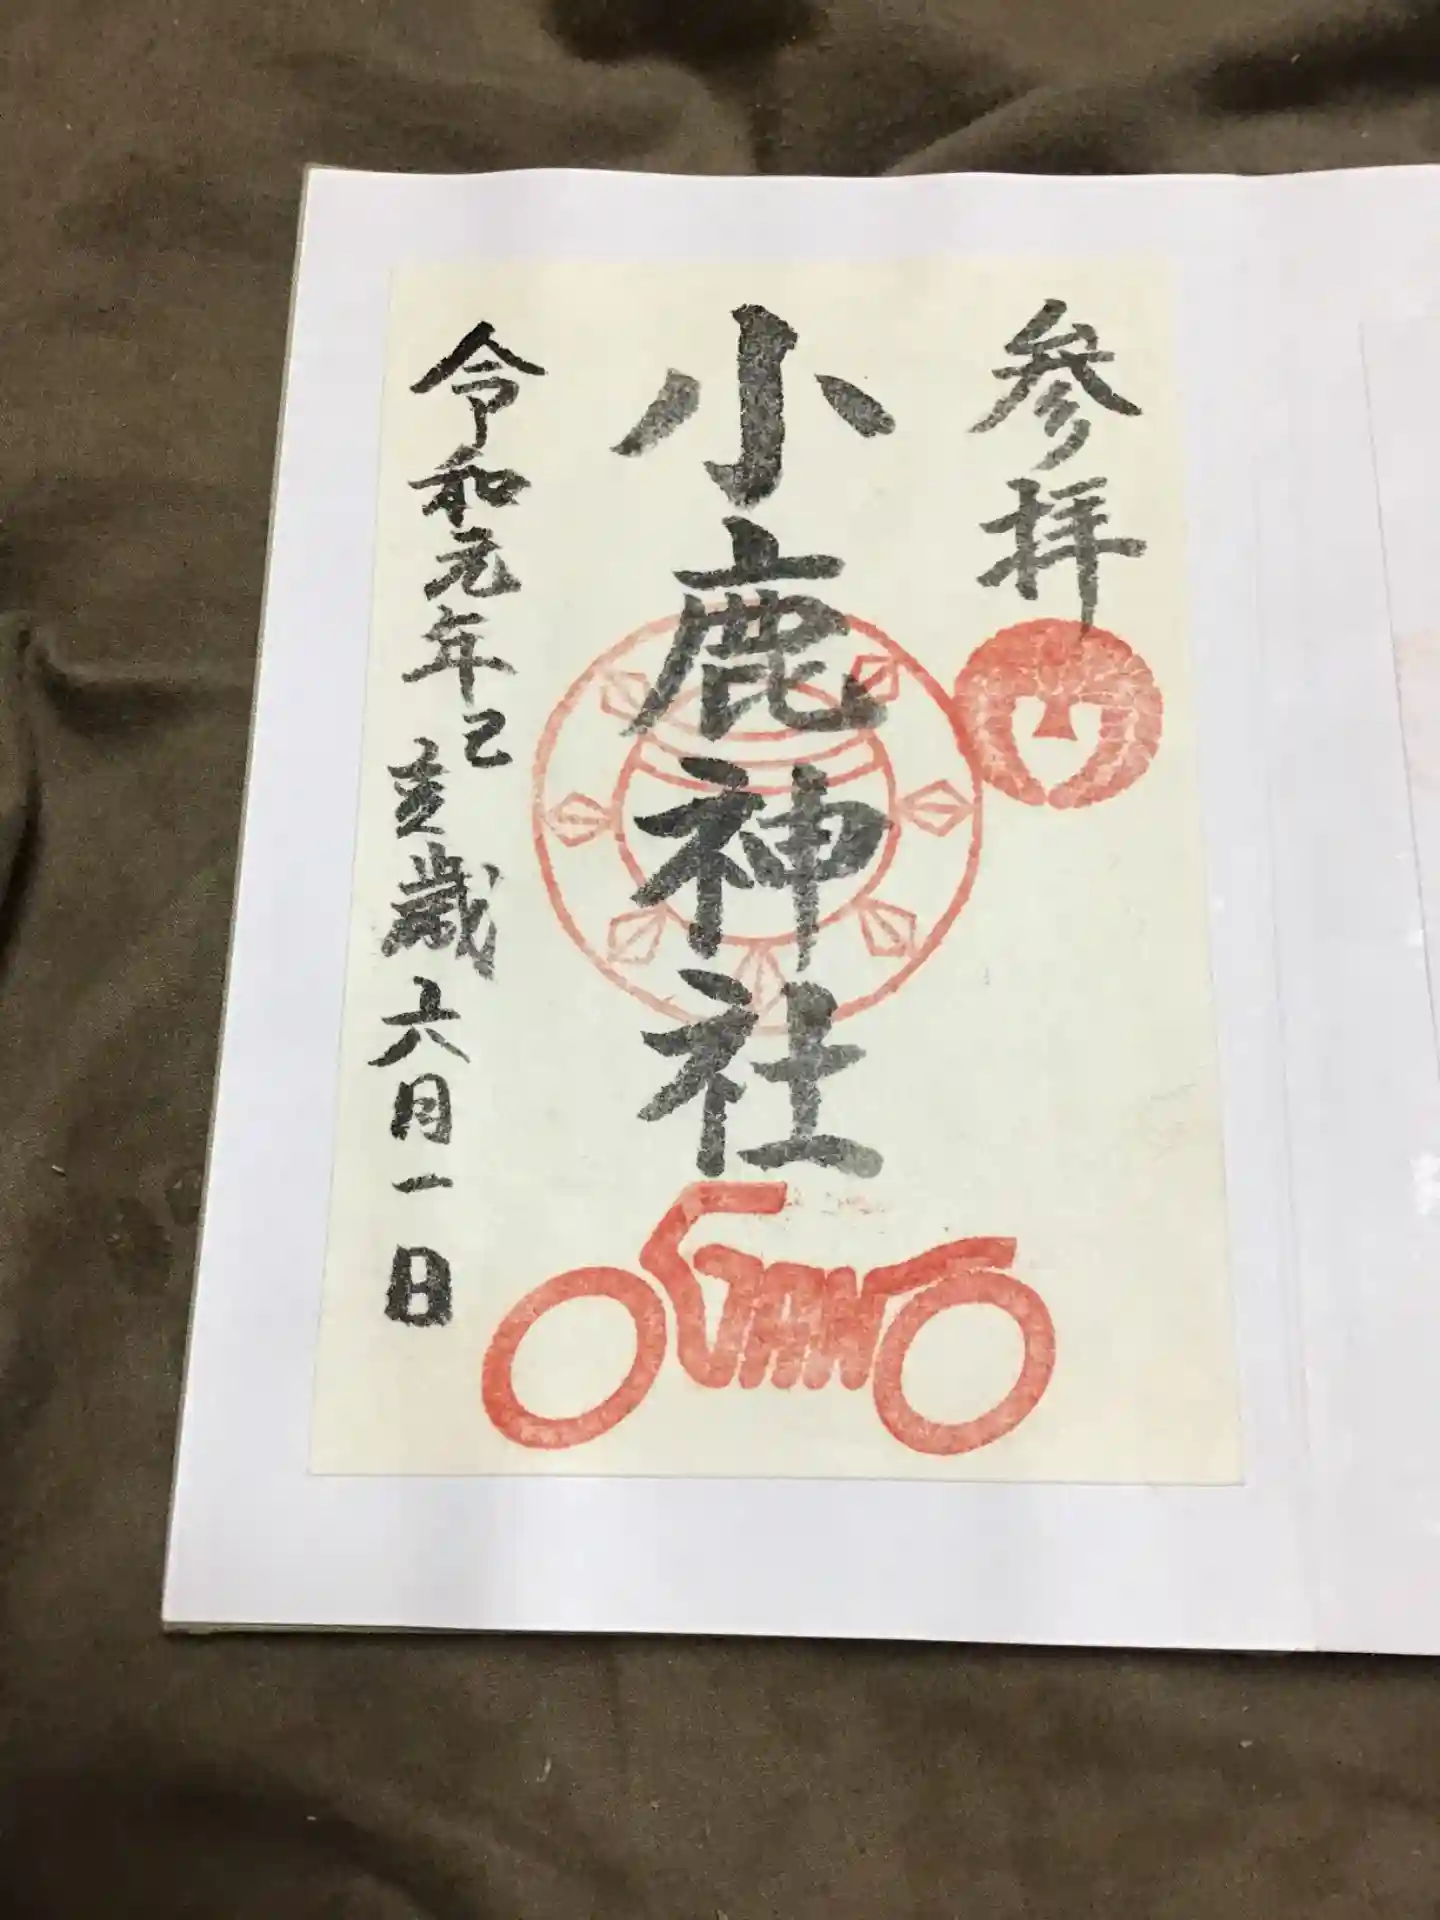 参拝
小鹿神社
令和元年己亥歳六月一日